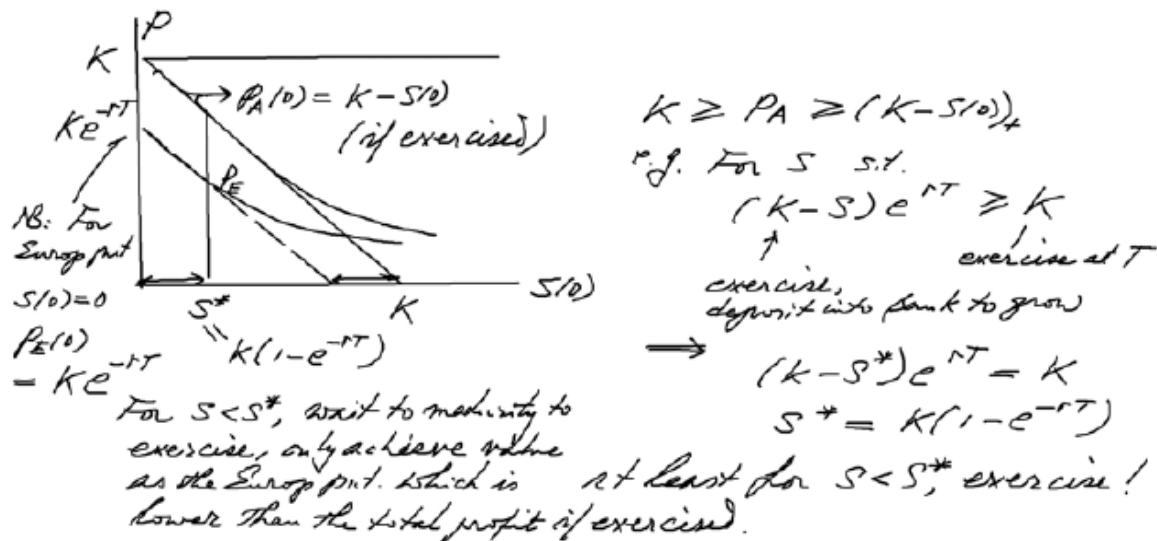 P
K
P_A(0) = K - S(0)
(if exercised)
Ke^{-rT}
P_E
NB: For
Europ put
S(0)=0
P_E(0)
= Ke^{-rT}
S*
= K(1-e^{-rT})
K
S(0)
For S < S*, wait to maturity to
exercise, only achieve value
as the Europ put. which is
lower than the total profit if exercised.
K ≥ P_A ≥ (K-S(0))_+
e.g. For S s.t.
(K-S)e^{rT} ≥ K
exercise at T
exercise,
deposit into bank to grow
⟹ (K-S*)e^{rT} = K
S* = K(1-e^{-rT})
at least for S < S*, exercise!